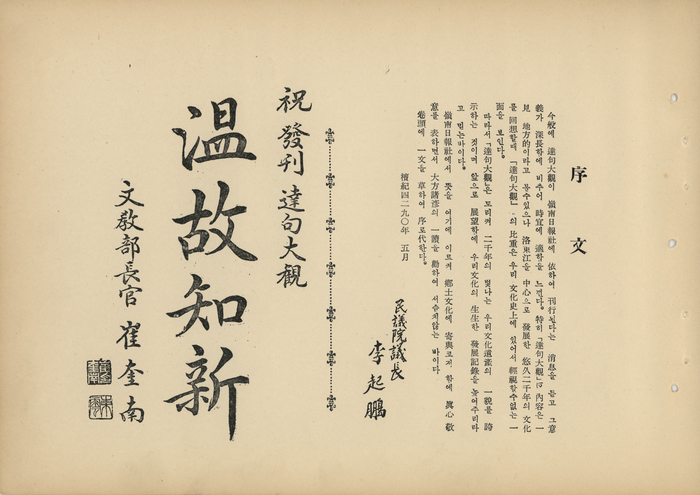 序文
今般에 達句大觀이 嶺南日報社에 依하여 刊行된다는 消息을 듣고 그 意
義가 深長함에 비추어 時宜에 適함을 느낀다. 特히「達句大觀」의 內容은 一
見 地方的이라고 볼수있으나 洛東江을 中心으로 發展한 悠久二千年의 文化
를 回想할때 「達句大觀」의 比重은 우리 文化史上에 있어서 輕視할수없는 一
面을 보인다.
따라서「達句大觀」은 도리켜 二千年의 빛나는 우리文化遺產의 一貌를 誇
示하는 것이며 앞으로 展望함에 우리文化의 生生한 發展記錄을 높여주리라
고 믿는바이다.
嶺南日報社에서 뜻을 여기에 이르켜 鄕土文化에 寄與코저 함에 眞心 敬
意를 表하면서 大方諸彥의 一讀을 勸하여 서슴치않는 바이다
卷頭에 一文을 草하여 序로代한다.
檀紀四二九〇年 五月
民議院議長
李起鵬
祝 發刊 達句大觀
溫故知新
文敎部長官 崔奎南